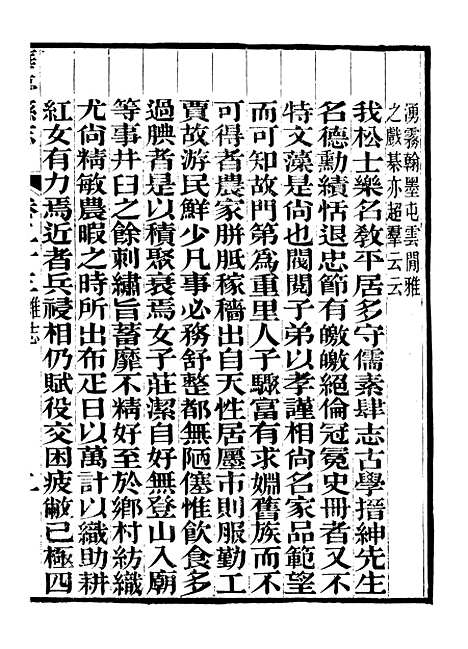 湧霧翰墨屯雲閒雅
之戲棊亦超羣云云
我松士樂名敎平居多守儒素肆志古學搢紳先生
名德勳績恬退忠節有皦皦絕倫冠冕史冊者又不
特文藻是尙也閥閱子弟以孝謹相尙名家品範望
而可知故門第爲重里人子驟富有求婣舊族而不
可得者農家胼胝稼穡出自天性居廛市則服勤工
賈故游民鮮少凡事必務舒整都無陋僿惟飮食多
過腆者是以積聚衰焉女子莊潔自好無登山入廟
等事井臼之餘刺繡旨蓄靡不精好至於鄕村紡織
尤尙精敏農暇之時所出布疋日以萬計以織助耕
紅女有力焉近者兵祲相仍賦役交困疲敝已極四
雜志